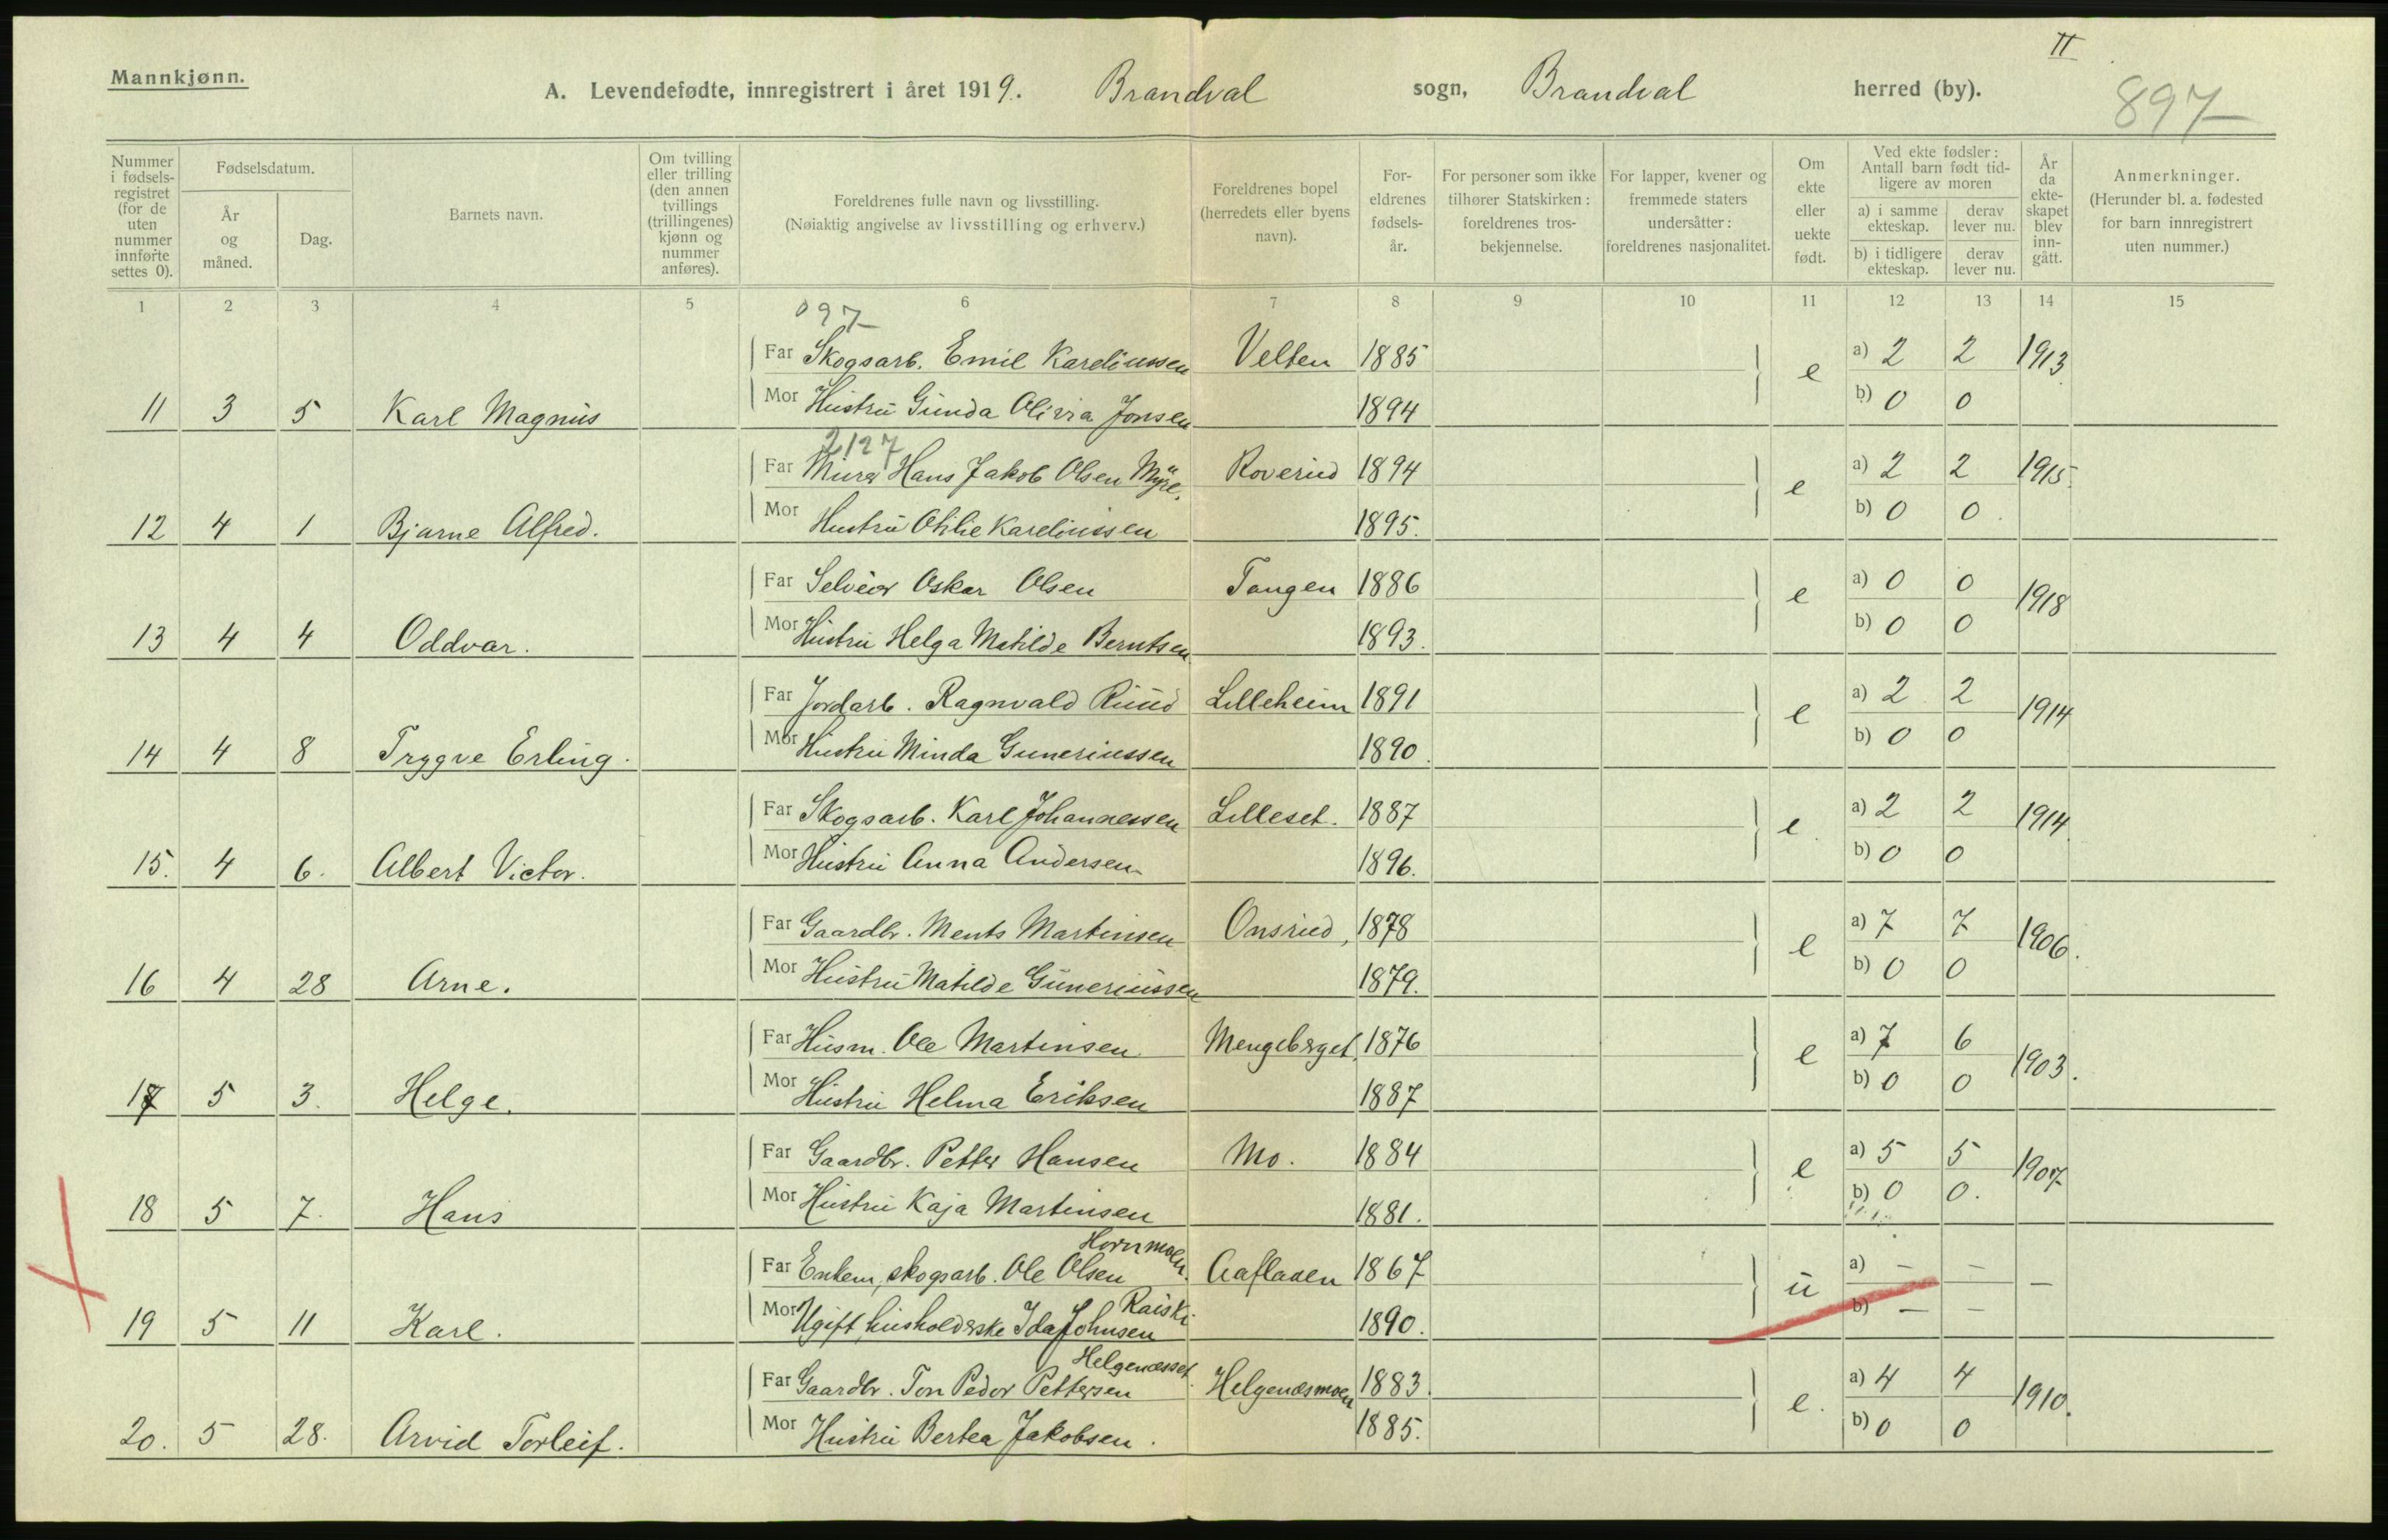 II
Mannkjønn.
A. Levendefødte, innregistrert i året 1919. Brandval sogn, Brandval herred (by).
897
Nummer i fødsels-registret (for de uten nummer innførte settes 0).
Fødselsdatum.
År og måned.
Dag.
Barnets navn.
Om tvilling eller trilling (den annen tvillings (trillingenes) kjønn og nummer anføres).
Foreldrenes fulle navn og livsstilling.
(Nøiaktig angivelse av livsstilling og erhverv.)
Foreldrenes bopel (herredets eller byens navn).
For-eldrenes fødsels-år.
For personer som ikke tilhører Statskirken: foreldrenes tros-bekjennelse.
For lapper, kvener og fremmede staters undersåtter: foreldrenes nasjonalitet.
Om ekte eller uekte født.
Ved ekte fødsler: Antall barn født tid-ligere av moren
a) i samme ekteskap. derav lever nu.
b) i tidligere ekteskap. derav lever nu.
År da ekte-skapet blev inn-gått.
Anmerkninger.
(Herunder bl. a. fødested for barn innregistrert uten nummer.)
1 2 3 4 5 6 7 8 9 10 11 12 13 14 15
097
Far Skogsarb. Emil Kareliussen Velten 1885 e a) 2 2 1913
11 3 5 Karl Magnus Mor Hustru Gunda Olivia Jonsen 1894 b) 0 0
2127
Far Murer Hans Jakob Olsen Myre. Roverud 1894 e a) 2 2 1915.
12 4 1 Bjarne Alfred. Mor Hustru Otilie Kareliussen 1895. b) 0 0.
Far Selveier Oskar Olsen Tangen 1886 e a) 0 0 1918
13 4 4 Oddvar. Mor Hustru Helga Matilde Berntsen 1893. b) 0 0
Far Jordarb. Ragnvald Ruud Lilleheim 1891 e a) 2 2 1914
14 4 8 Trygve Erling. Mor Hustru Minda Guneriussen 1890. b) 0 0
Far Skogsarb. Karl Johannessen Lilleset. 1887 e. a) 2 2 1914
15. 4 6. Albert Victor. Mor Hustru Anna Andersen 1896. b) 0 0
Far Gaardbr. Ments Martinsen Onsrud, 1878 e a) 7 7 1906.
16 4 28 Arne. Mor Hustru Matilde Guneriussen 1879. b) 0 0
Far Husm. Ole Martinsen. Mengeberget, 1876 e a) 7 6 1903.
17 5 3. Helge. Mor Hustru Helma Eriksen 1887 b) 0 0
Far Gaardbr. Petter Hansen Mo. 1884 e a) 5 5 1907
18 5 7. Hans Mor Hustru Kaja Martinsen 1881. b) 0 0.
Hornmoen.
Far Enkem, skogsarb. Ole Olsen Aafladen 1867 u a) — — —
Raiski
19 5 11 Karl. Mor Ugift husholderske Ida Johnsen 1890. b) — —
Helgenesset.
Far Gaardbr. Ton Peder Pettersen Helgenesmoen 1883. e. a) 4 4 1910.
20. 5 28. Arvid Torleif. Mor Hustru Bertea Jakobsen. 1885. b) 0 0